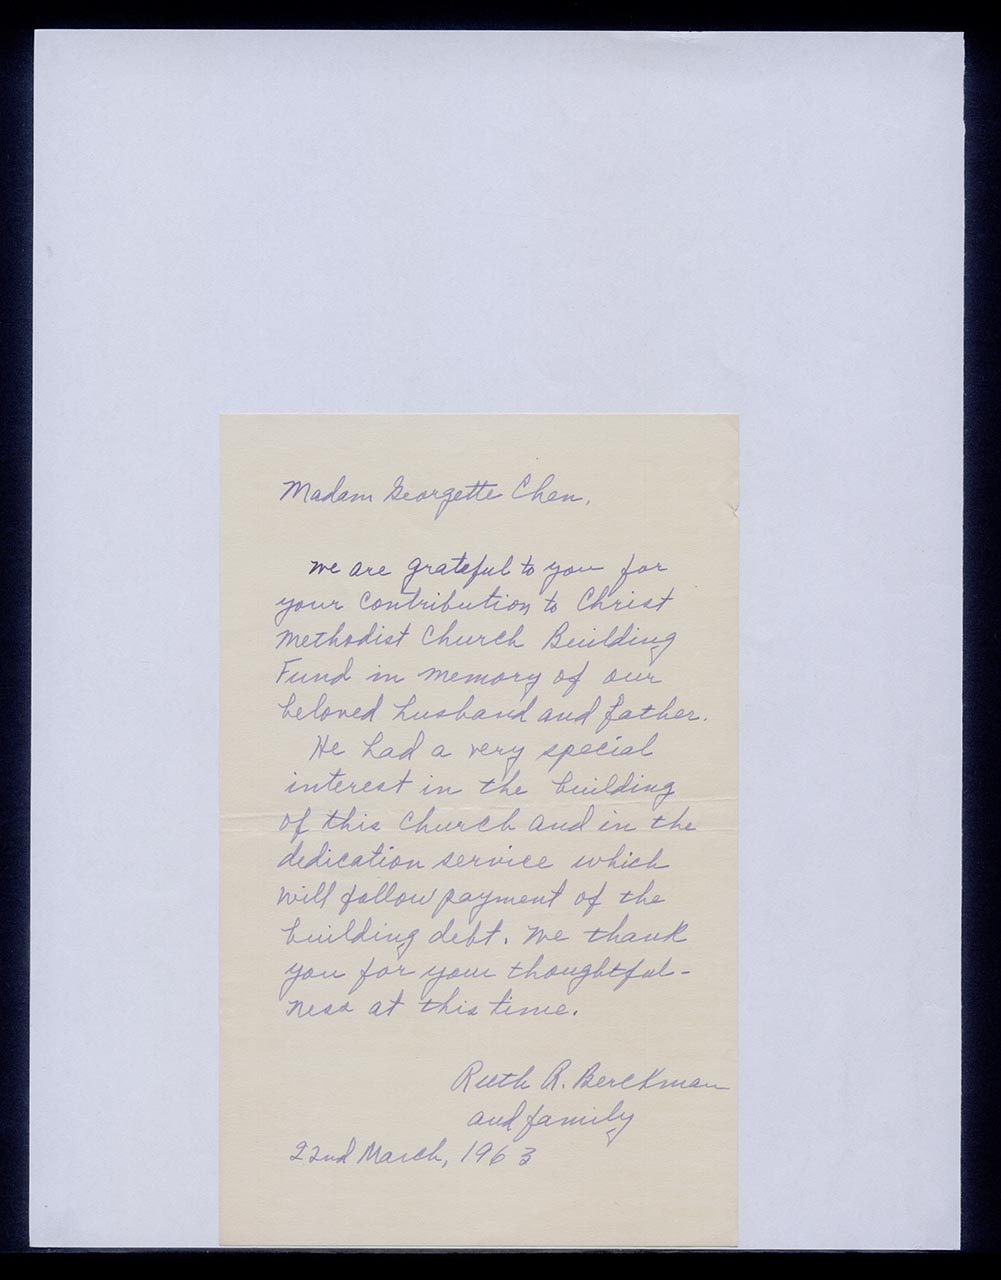 Madam Georgette Chen,
We are grateful to you for
your contribution to Christ
Methodist Church Building
Fund in memory of our
beloved husband and father.
He had a very special
interest in the building
of this church and in the
dedication service which
will follow payment of the
building debt. We thank
you for your thoughtful-
ness at this time.
Ruth R. Berckman
and family
22nd March, 1963